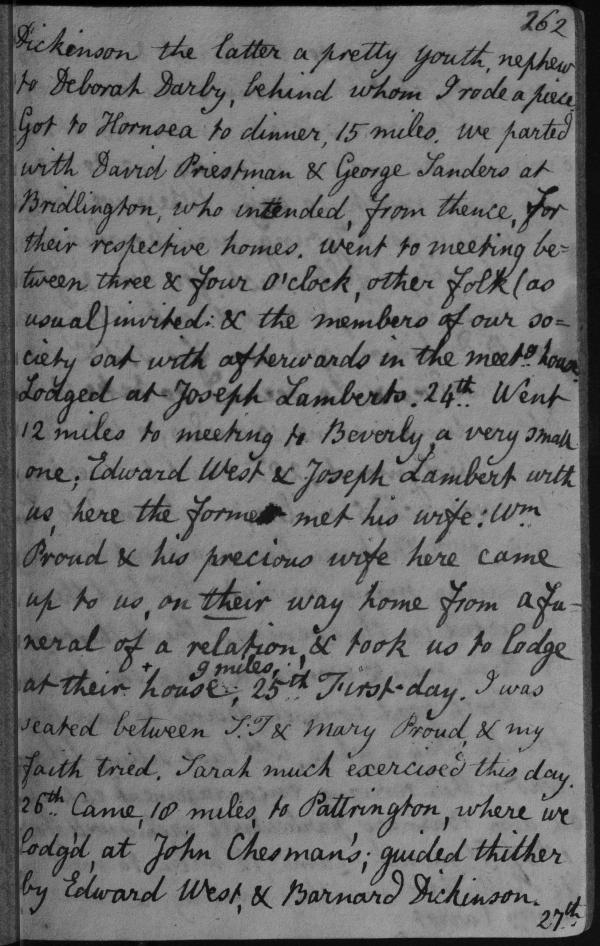 262
Dickinson the latter a pretty youth, nephew
to Deborah Darby, behind whom I rode a piece.
Got to Hornsea to dinner, 15 miles. we parted
with David Priestman & George Sanders at
Bridlington, who intended, from thence, for
their respective homes. went to meeting be=
tween three & four o'clock, other folk (as
usual) invited: & the members of our so=
ciety sat with afterwards in the meetg house.
Lodged at Joseph Lamberts. 24th Went
12 miles to meeting to Beverly a very small
one; Edward West & Joseph Lambert with
us, here the former met his wife: Wm
Proud & his precious wife here came
up to us, on their way home from a fu=
neral of a relation, & took us to lodge
+ 9 miles,
at their house; 25th First-day. I was
seated between S:T & Mary Proud, & my
faith tried. Sarah much exercised this day.
26th Came, 18 miles, to Pattrington, where we
lodg'd, at John Chesman's; guided thither
by Edward West, & Barnard Dickinson.
27th